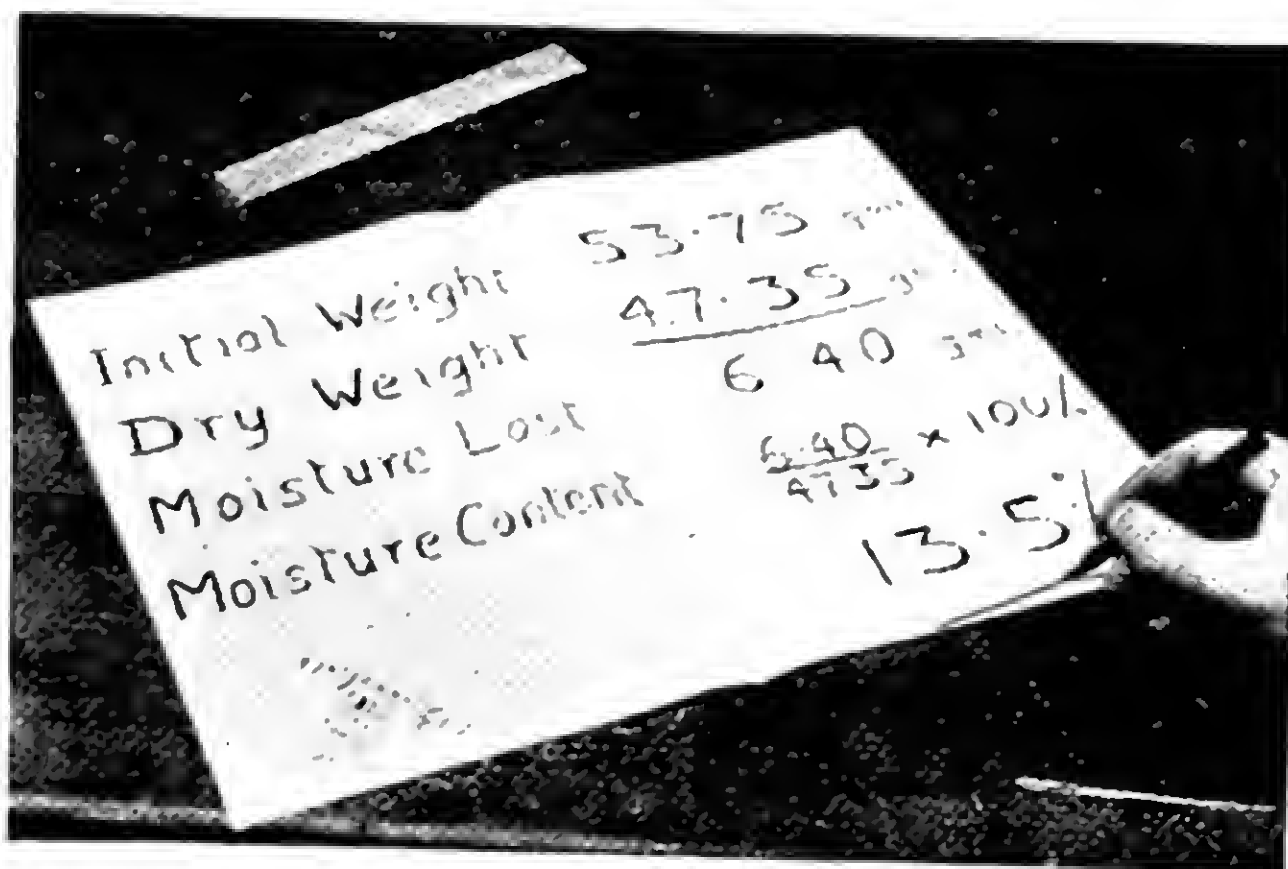 Initial Weight 53·75 gms
Dry Weight 47·35 gms
Moisture Lost 6 40 gms
Moisture Content 6·40/47 35 × 100%
13·5%